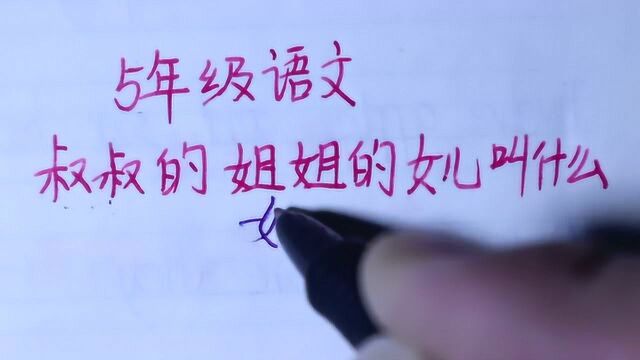 5年级语文
叔叔的姐姐的女儿叫什么